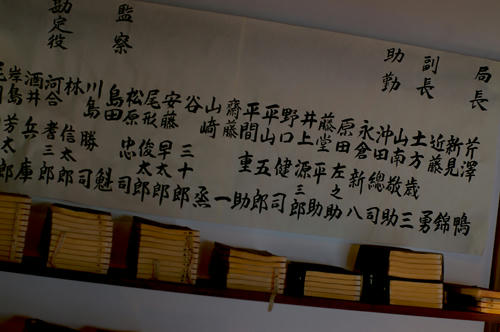 局長
芹澤 鴨
新見 錦
近藤 勇
副長
土方歳三
山南敬助
助勤
沖田總司
永倉新八
原田左之助
藤堂平助
井上源三郎
野口健司
平山五郎
平間重助
齋藤一
山崎烝
谷三十郎
安藤早太郎
尾形俊太郎
松原忠司
監察
島田魁
川島勝司
林信太郎
勘定役
河合耆三郎
酒井兵庫
岸島芳太郎